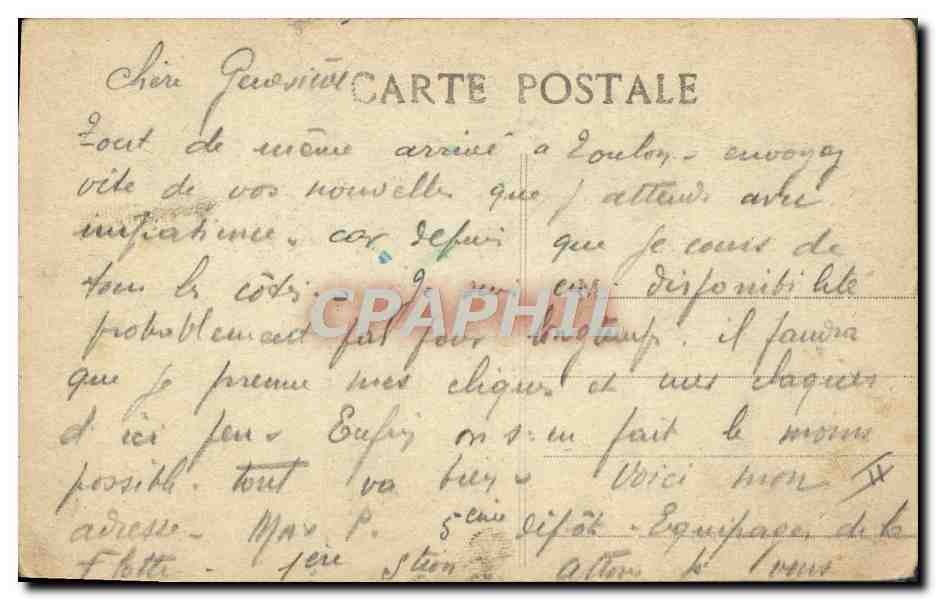 Chère Geneviève
CARTE POSTALE
Tout de même arrivé a Toulon - envoyez
vite de vos nouvelles que j attends avec
impatience. car depuis que je cours de
tous les côtés. - Je suis en disponibilité
CPAPHIL
probablement pas pour longtemps. il faudra
que je prenne mes cliques et mes claques
d ici peu. Enfin on s'en fait le moins
possible. tout va bien. Voici mon
adresse - Max P. 5ème dépôt - Equipages de la
Flotte - 1ère Stion